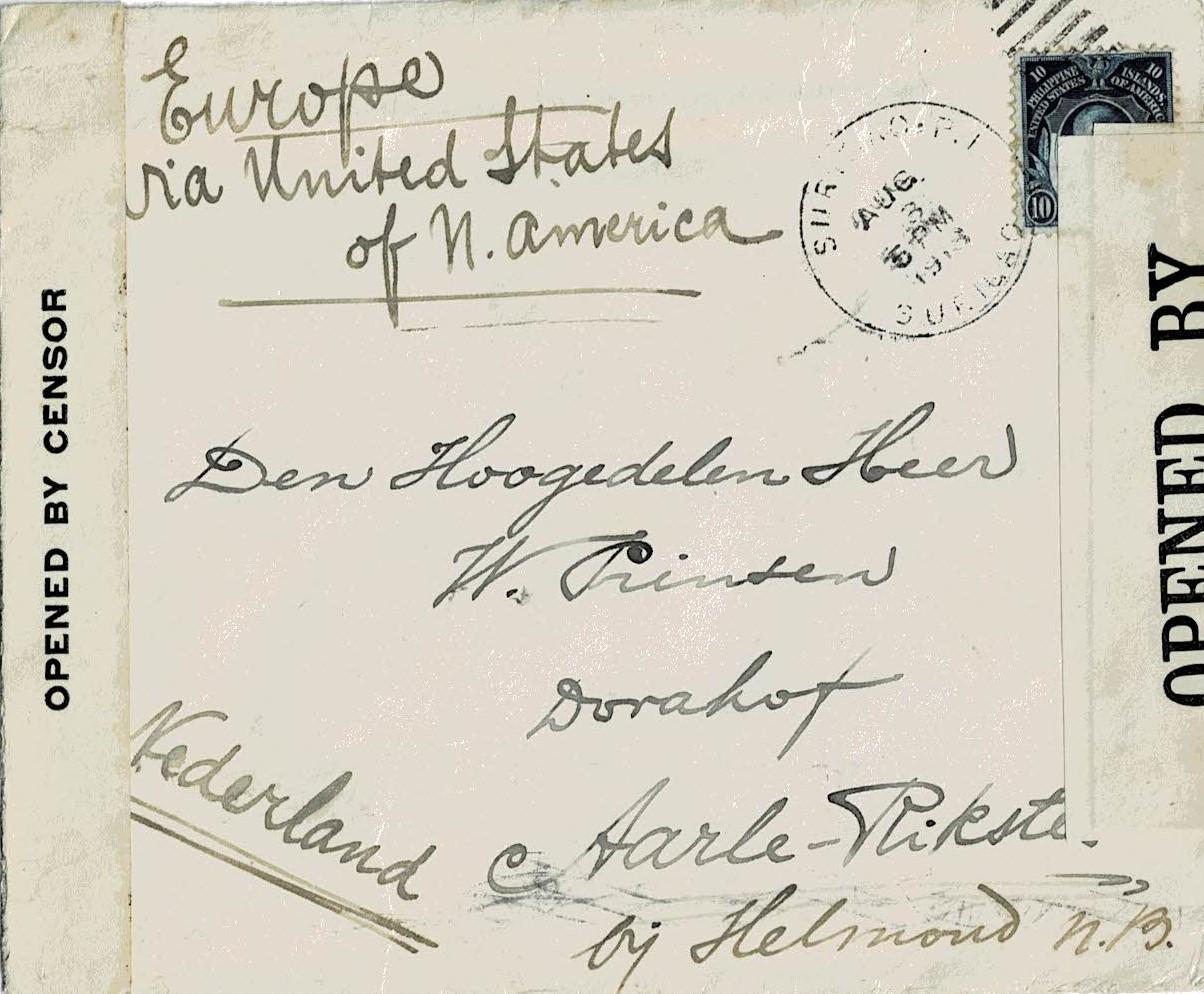 Europe
via United States
of N. America
10 10
PHILIPPINE ISLANDS
UNITED STATES OF AMERICA
10
P.I.
AUG
3
5 PM
SURIGAO
OPENED BY CENSOR
OPENED BY
Den Hoogedelen Heer
W. Prinsen
Dorahof
Aarle-Rikste
by Helmond N.B.
Nederland